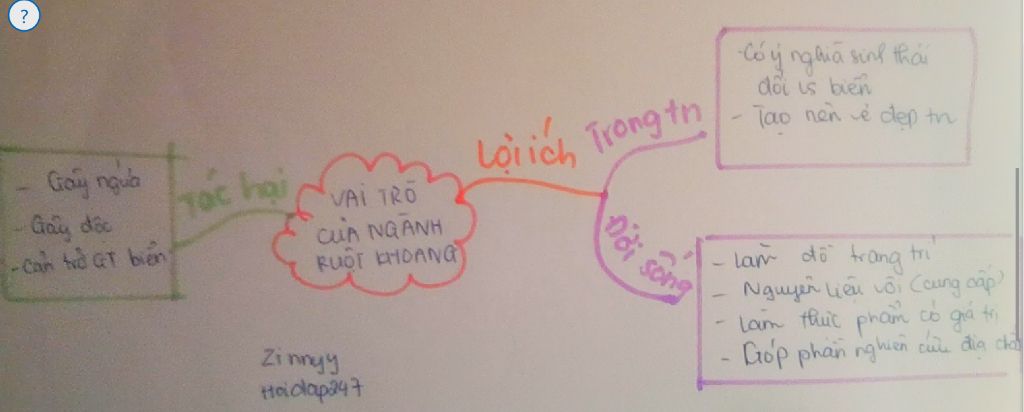 ?
VAI TRÒ
CỦA NGÀNH
RUỘT KHOANG
Tác hại
- Gây ngứa
- Gây độc
- Cản trở GT biển
Lợi ích
Trong tn
- Có ý nghĩa sinh thái
đối vs biển
- Tạo nên vẻ đẹp tn
Đời sống
- Làm đồ trang trí
- Nguyên liệu vôi (cung cấp)
- Làm thực phẩm có giá trị
- Góp phần nghiên cứu địa chất
Zinnyy
Hoidap247